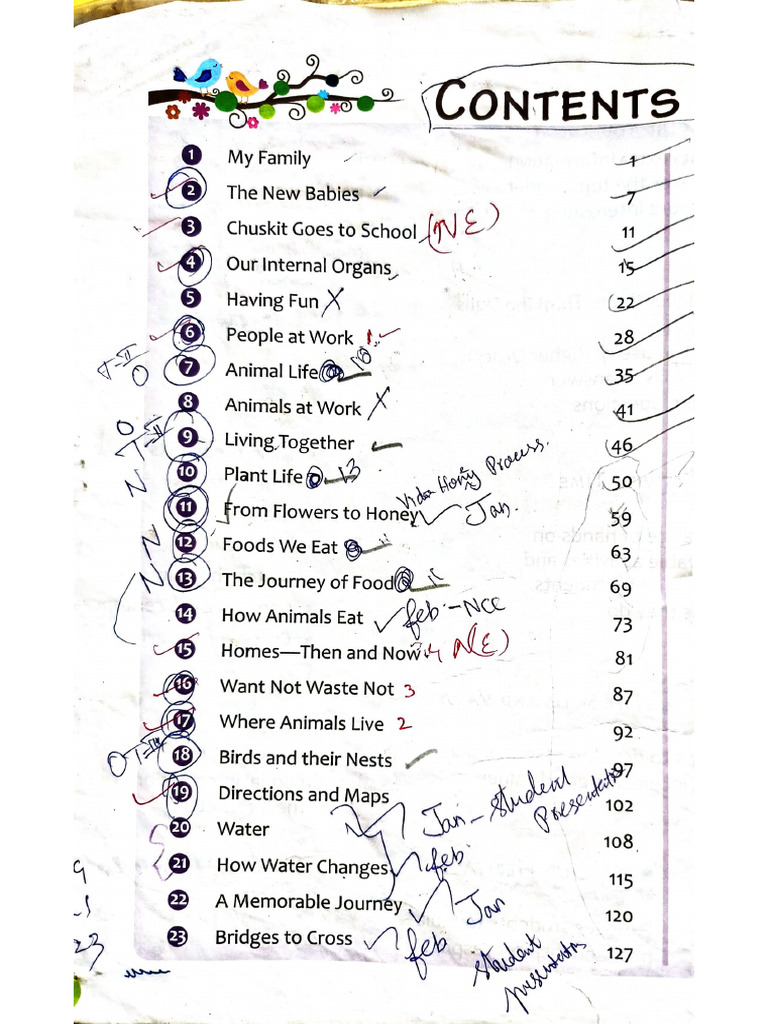 CONTENTS
1 My Family 1
2 The New Babies 7
3 Chuskit Goes to School (NE) 11
4 Our Internal Organs 15
5 Having Fun X 22
6 People at Work 1 28
T-II
O
7 Animal Life 35
8 Animals at Work X 41
O
T-II
9 Living Together 46
N
10 Plant Life 13 50
11 From Flowers to Honey Jan. 59
Honey Process.
N
12 Foods We Eat 11 63
N
13 The Journey of Food 69
14 How Animals Eat feb - NCC 73
15 Homes—Then and Now 4 (NE) 81
16 Want Not Waste Not 3 87
17 Where Animals Live 2 92
O T-III
18 Birds and their Nests 97
19 Directions and Maps 102
Jan - Student
Presentation
20 Water 108
21 How Water Changes feb. 115
22 A Memorable Journey Jan 120
23 Bridges to Cross feb 127
student
presentation
23